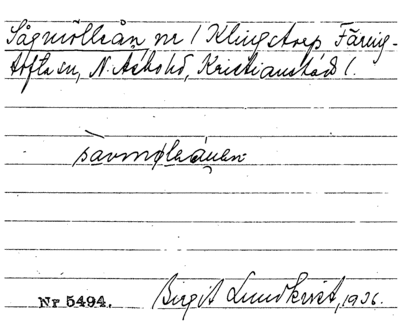 Sågmölleån nr 1 Klingstorp Färing-
tofta sn, N. Åsbo hd, Kristianstads l.
savmøleånen
Nr 5494. Birgit Lundkvist, 1936.